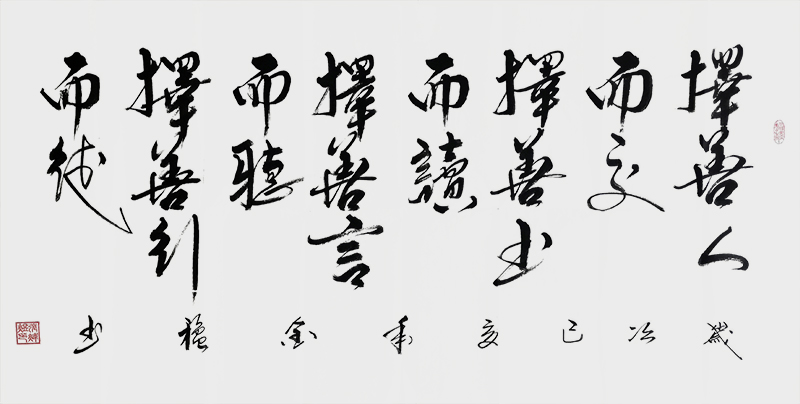 擇善人
而交
擇善书
而讀
擇善言
而聽
擇善行
而從
歲次己亥年金书